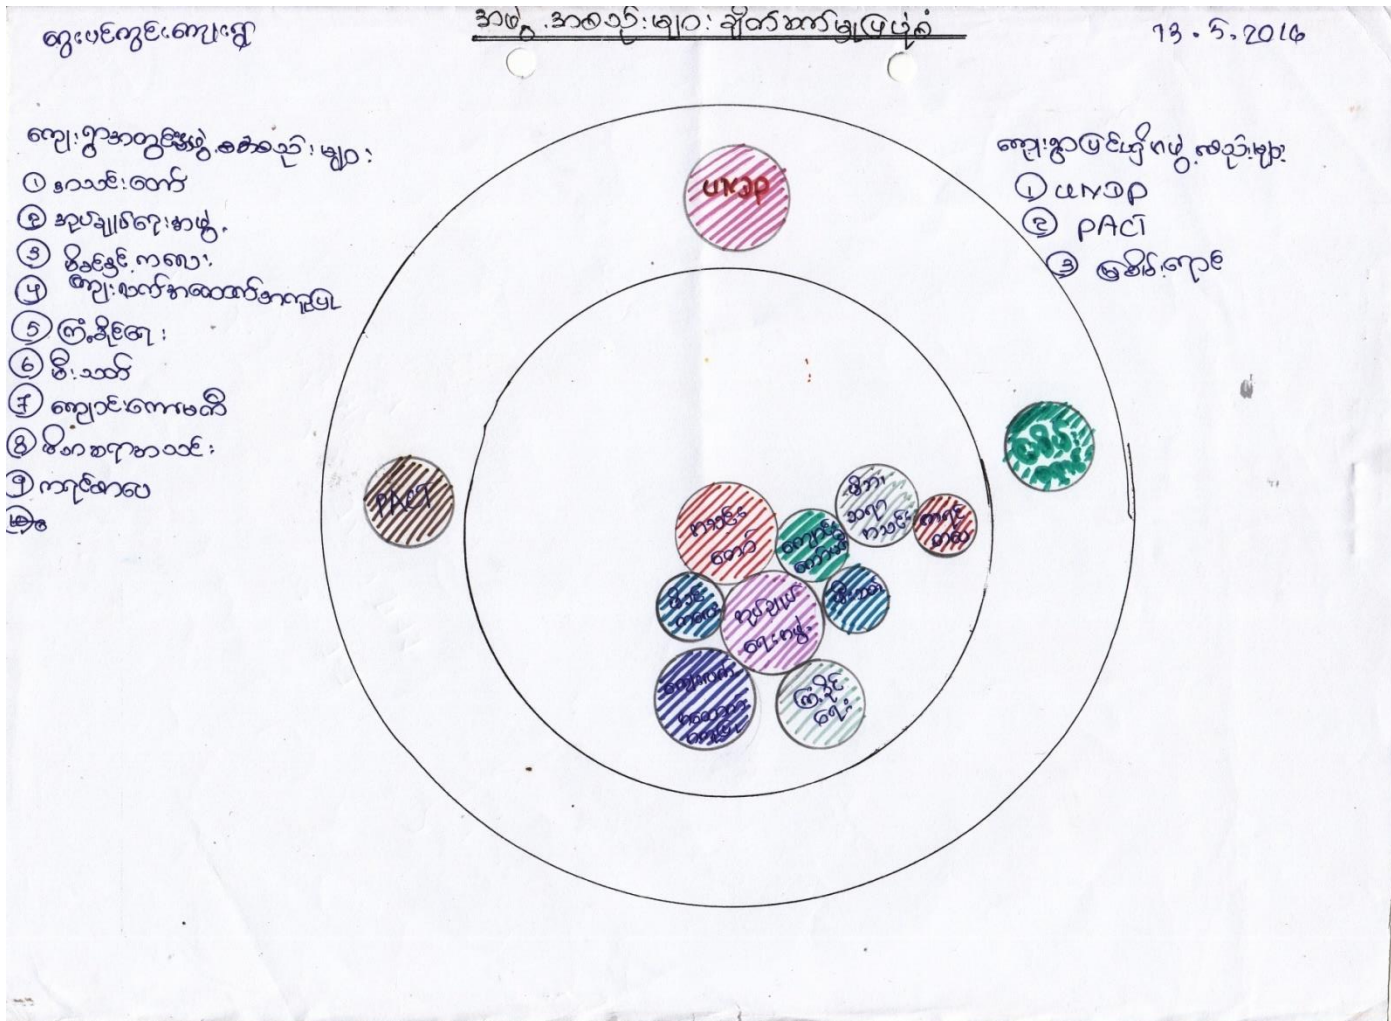 အဖွဲ့အစည်းများ ချိတ်ဆက်မှုပြပုံစံ
13.5.2016
ကျေးရွာအတွင်းအဖွဲ့အစည်းများ
① အသင်းတော်
② အုပ်ချုပ်ရေးအဖွဲ့
③ မိခင်နှင့်ကလေး
④ ကျေးလက်အထောက်အကူပြု
⑤ ကြံ့ခိုင်ရေး
⑥ မီးသတ်
⑦ ကျောင်းကော်မတီ
⑧ မိဘဆရာအသင်း
⑨ ကရင်စာပေ
ကျေးရွာပြင်ပရှိအဖွဲ့အစည်းများ
① UNDP
② PACT
③ မြစိမ်းရောင်
UNDP
PACT
မြစိမ်းရောင်
အသင်းတော်
ကျောင်းကော်မတီ
မိဘ
ဆရာ
အသင်း
ကရင်
စာပေ
မိခင်
ကလေး
အုပ်ချုပ်
ရေးအဖွဲ့
မီးသတ်
ကျေးလက်
အထောက်
အကူပြု
ကြံ့ခိုင်
ရေး